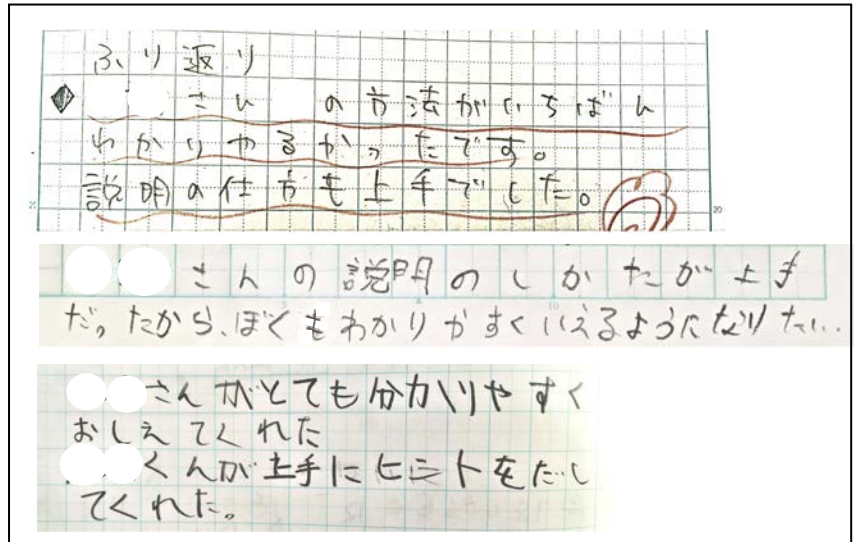 ふり返り
さん の方法がいちばん
わかりやるかったです。
説明の仕方も上手でした。
さんの説明のしかたが上手
だったから、ぼくもわかりかすくいえるようになりたい…
さんがとても分かりやすく
おしえてくれた
くんが上手にヒントをだし
てくれた。
20
10